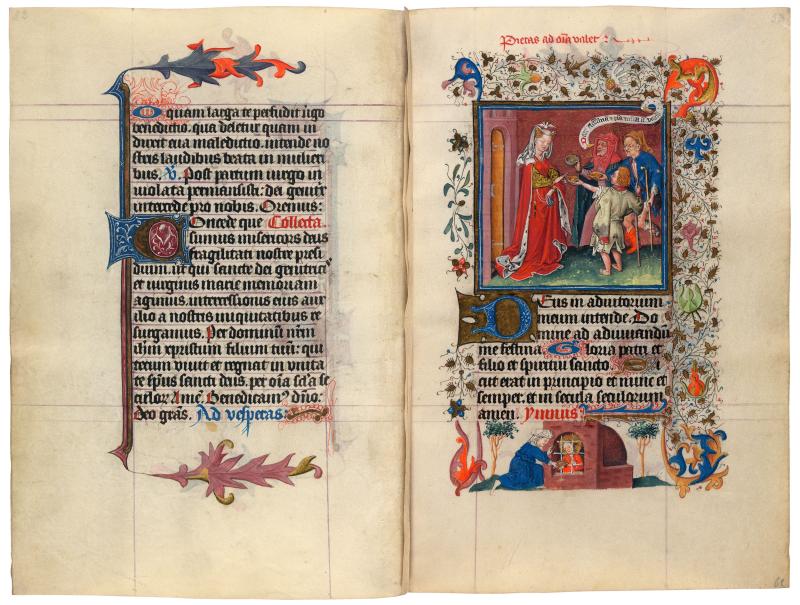 O quam larga te perfudit v̄go
benedictio. qua deletur quam in
duxit eua maledictio. intende no
stris laudibus beata in mulieri
bus. V. Post partum uirgo in
uiolata permansisti: dei genitrix
intercede pro nobis. Oremus:
Concede que Collecta
sumus misericors deus
fragilitati nostre presi
dium. ut qui sancte dei genitrici⁹
et uirginis marie memoriam
agimus. intercessionis eius aux
ilio a nostris iniquitatibus re
surgamus. Per dominū nr̄m
ihm xpristum filium tuū: qui
tecum viuit et regnat in vnita
te sp̄us sancti deus. per oīa scl̄a se
culor. Amē. Benedicam⁹ dn̄o:
Deo grās. Ad vesperas:
Pietas ad oīa valet:
Deus in adiutorium
meum intende: Do
mine ad adiuuandū
me festina. Gloria patri et
filio et spiritui sancto
Sicut erat in principio et nunc et
semper. et in secula seculorum
amen. ymnus: